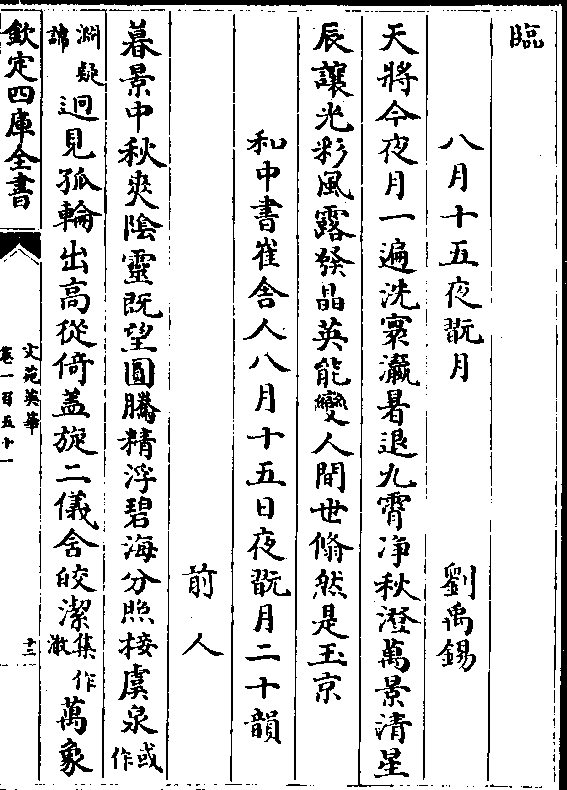 臨
八月十五夜翫月 劉禹錫
天將今夜月一遍洗寰瀛暑退九霄净秋澄萬景清星
辰讓光彩風露發晶英能變人間世翛然是玉京
和中書崔舍人八月十五日夜翫月二十韻
前人
暮景中秋爽陰靈既望圓騰精浮碧海分照接虞泉或作
淵疑諱迥見孤輪出高從倚蓋旋二儀含皎潔集作澈萬象
欽定四庫全書
文苑英華
卷一百五十一
十三